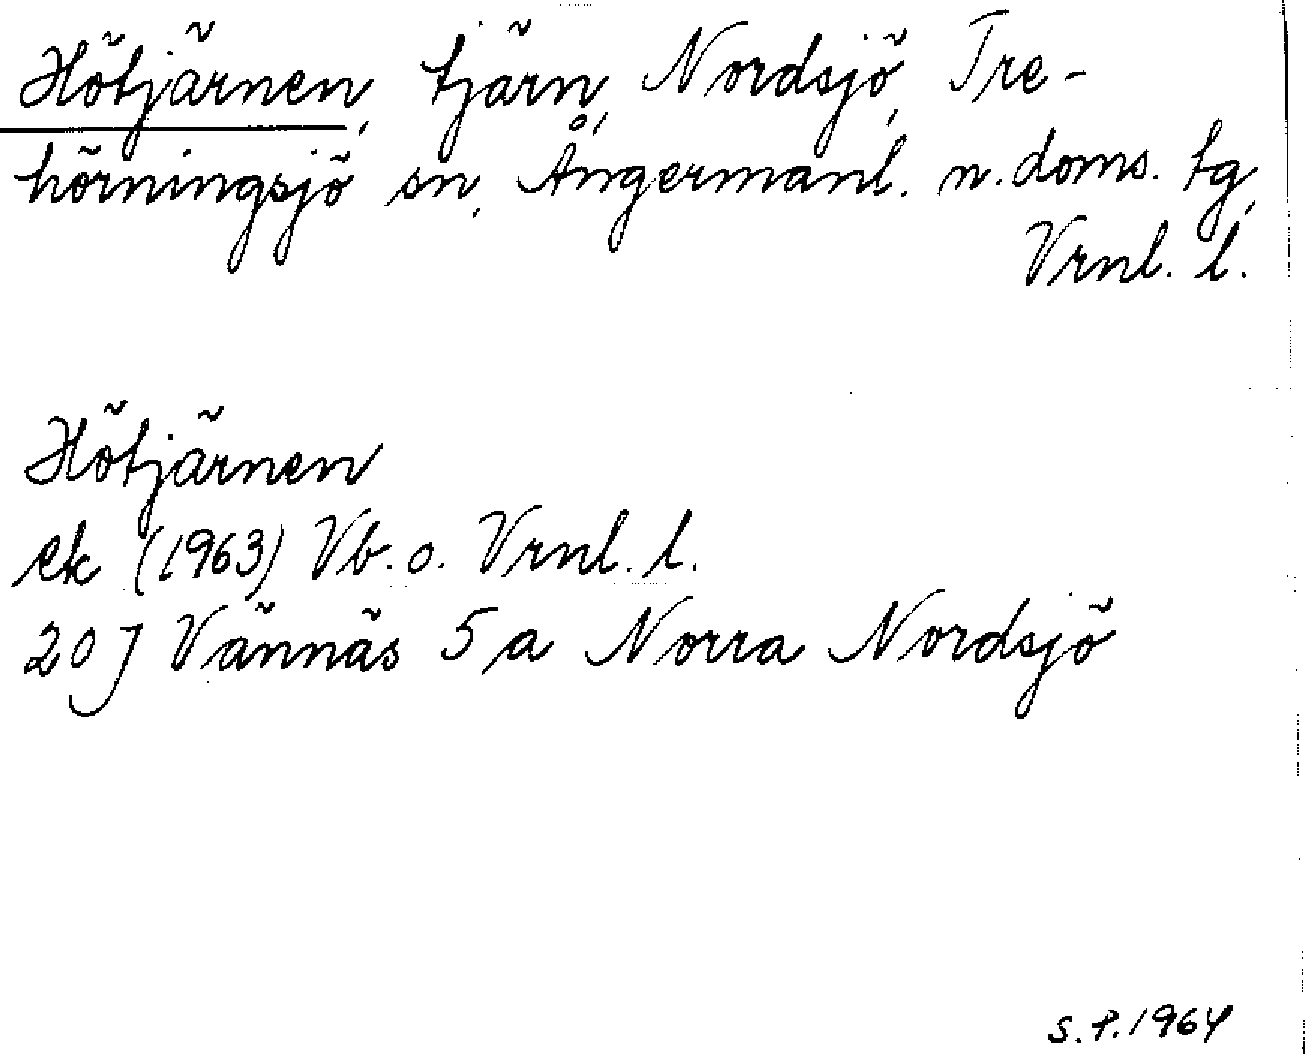 Hötjärnen, tjärn, Nordsjö, Tre-
hörningsjö sn, Ångermanl. n. doms. tg,
Vrnl. l.
Hötjärnen
ek (1963) Vb. o. Vrnl. l.
20 J Vännäs 5 a Norra Nordsjö
S.P. 1964